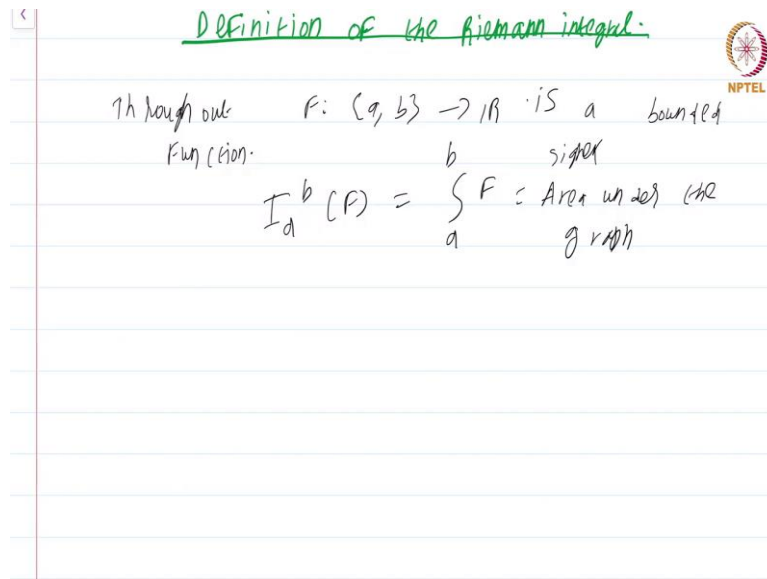 Definition of the Riemann integral.
NPTEL
Throughout F: [a, b] → IR is a bounded
Function.
signed
I_a^b (F) = ∫_a^b F = Area under the
graph